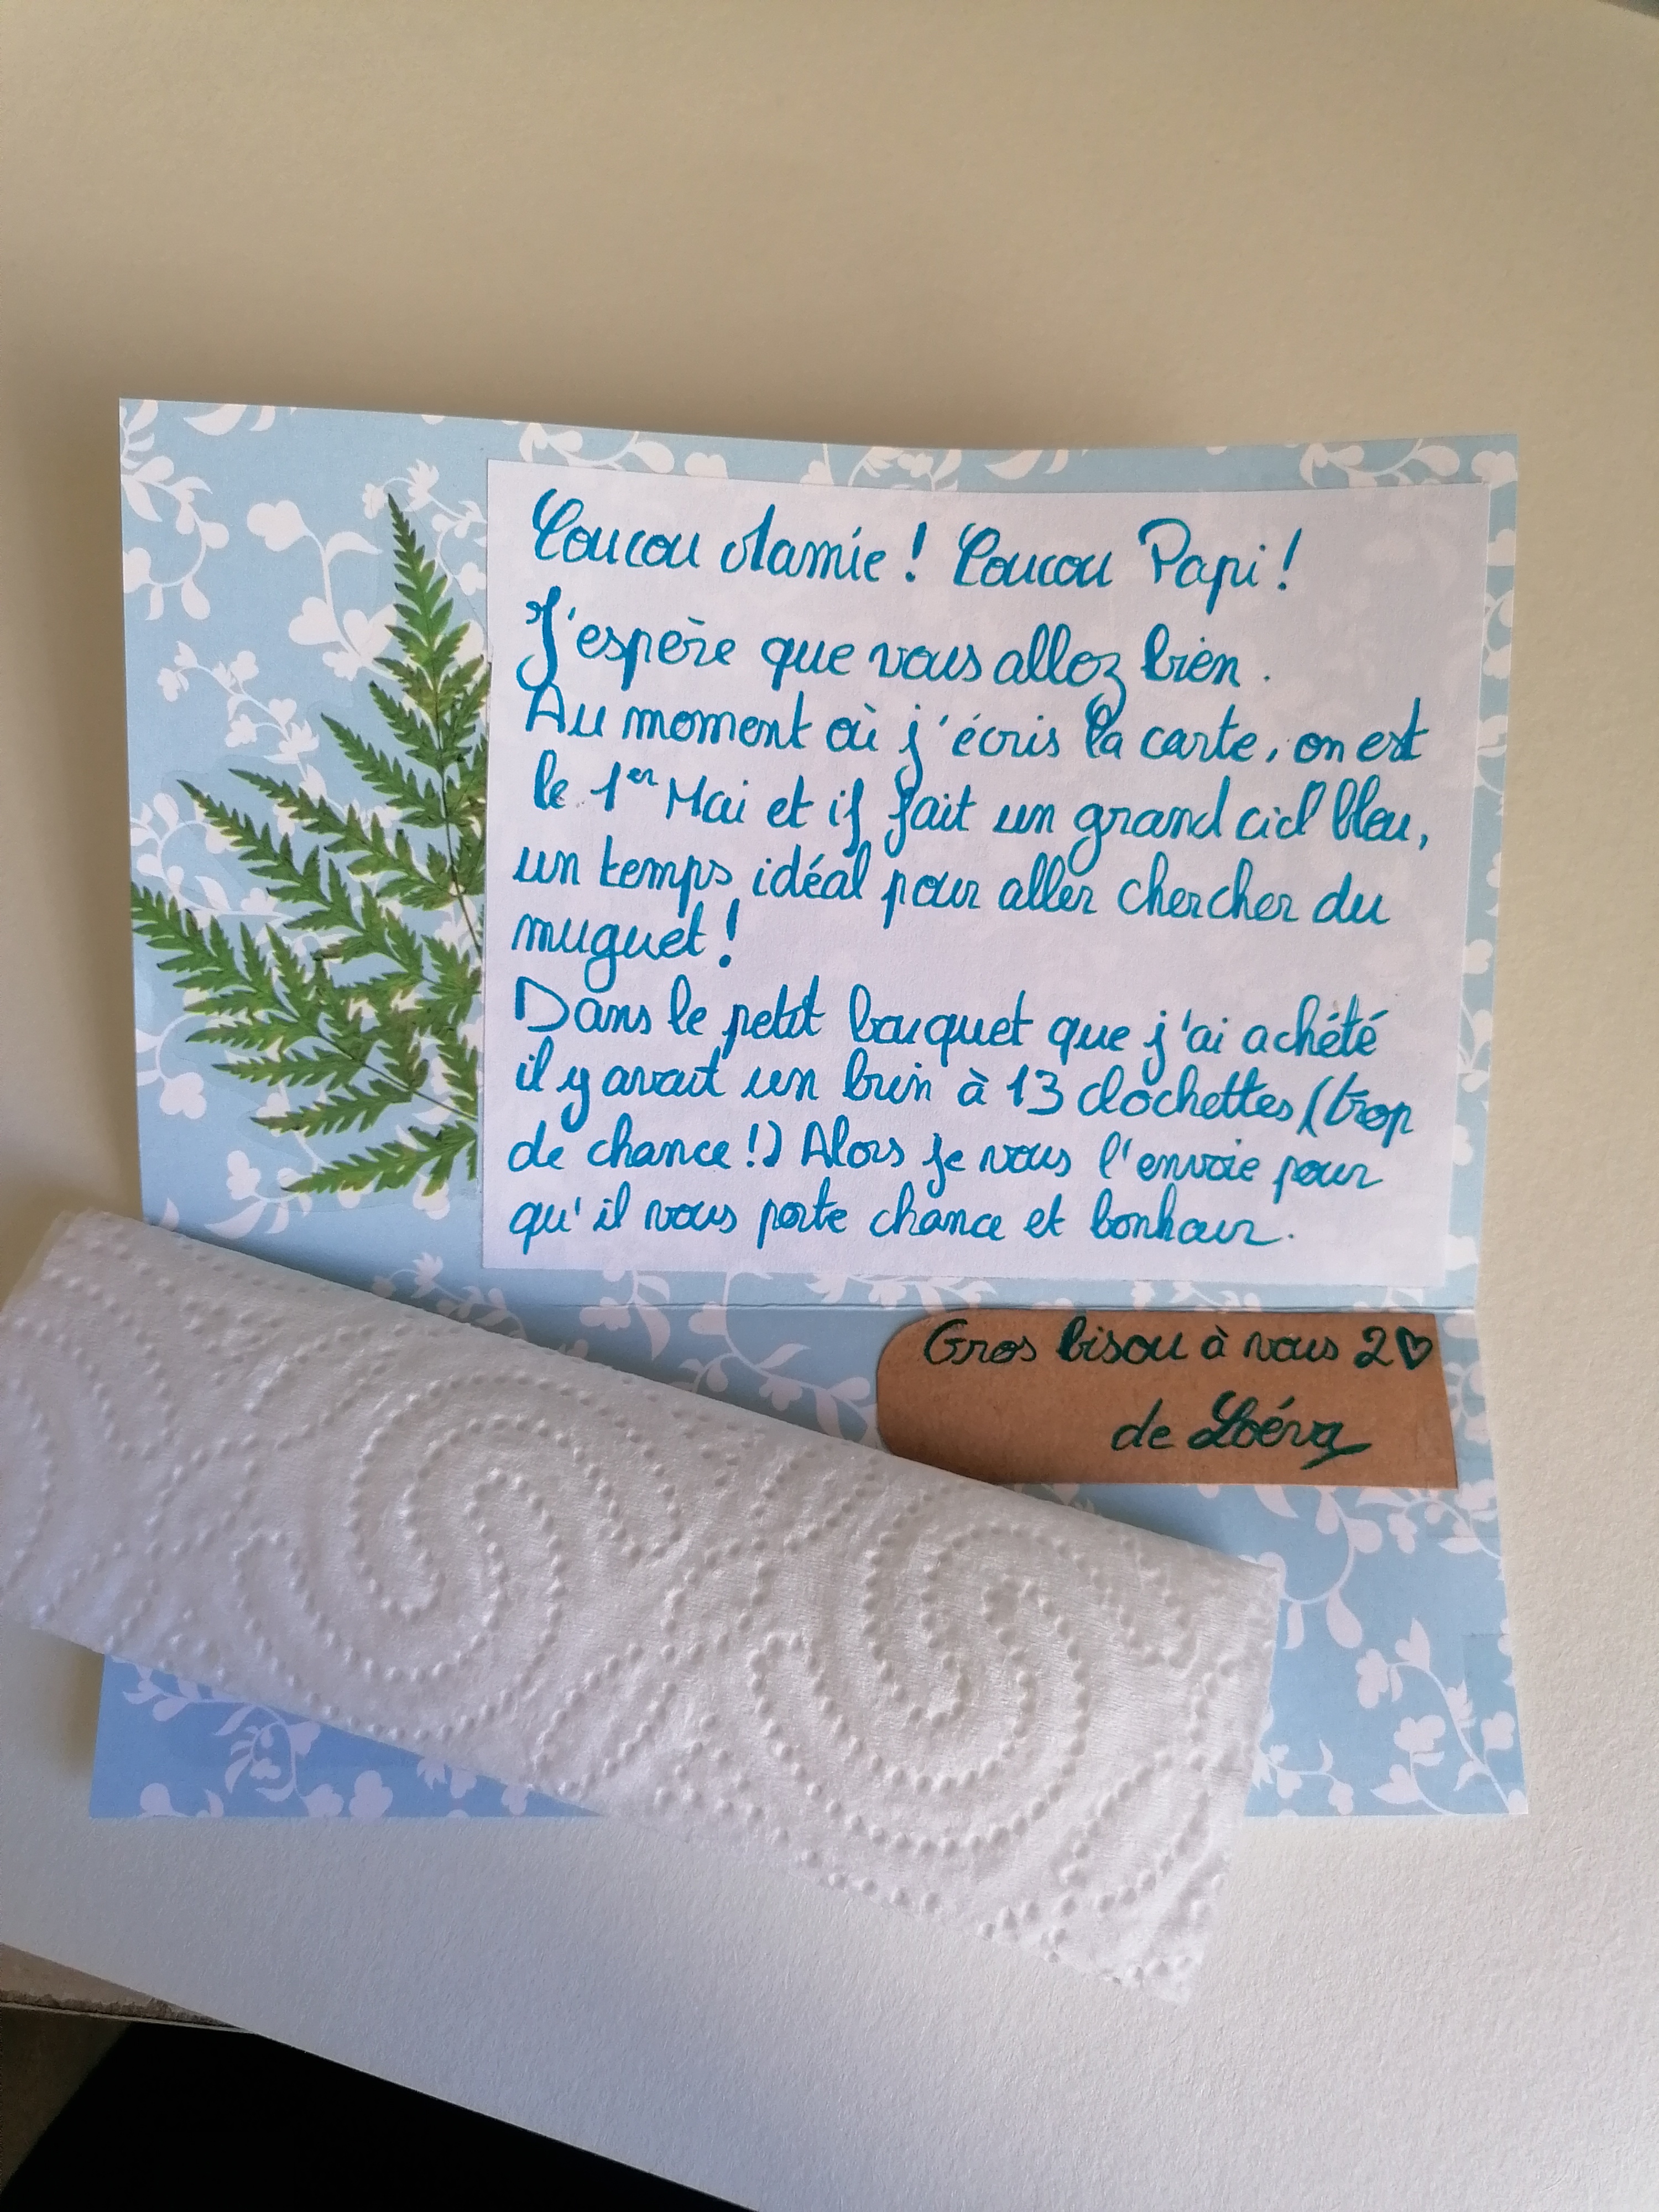 Coucou Mamie ! Coucou Papi !
J'espère que vous allez bien.
Au moment où j'écris la carte, on est
le 1er Mai et il fait un grand ciel bleu,
un temps idéal pour aller chercher du
muguet !
Dans le petit bouquet que j'ai achété
il y avait un brin à 13 clochettes (trop
de chance !) Alors je vous l'envoie pour
qu'il vous porte chance et bonheur.
Gros bisou à vous 2 ♡
de Loéva